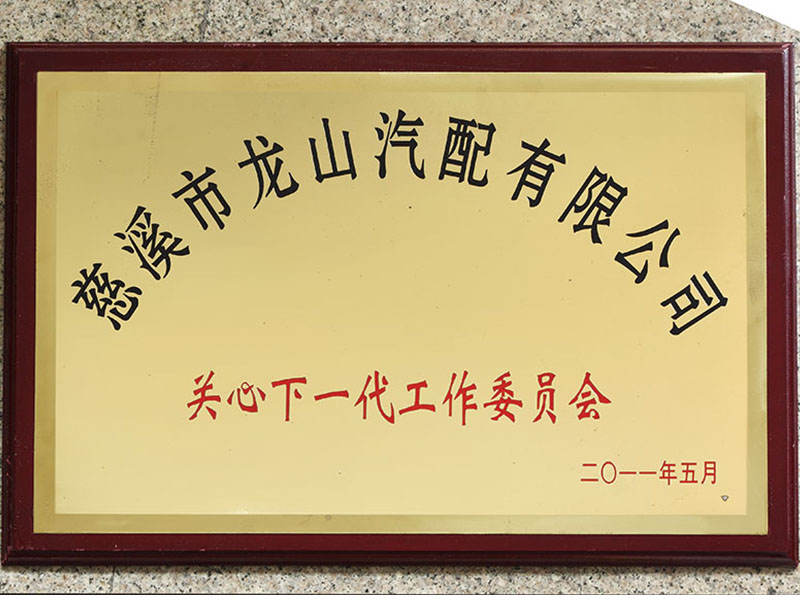 慈溪市龙山汽配有限公司
关心下一代工作委员会
二〇一一年五月